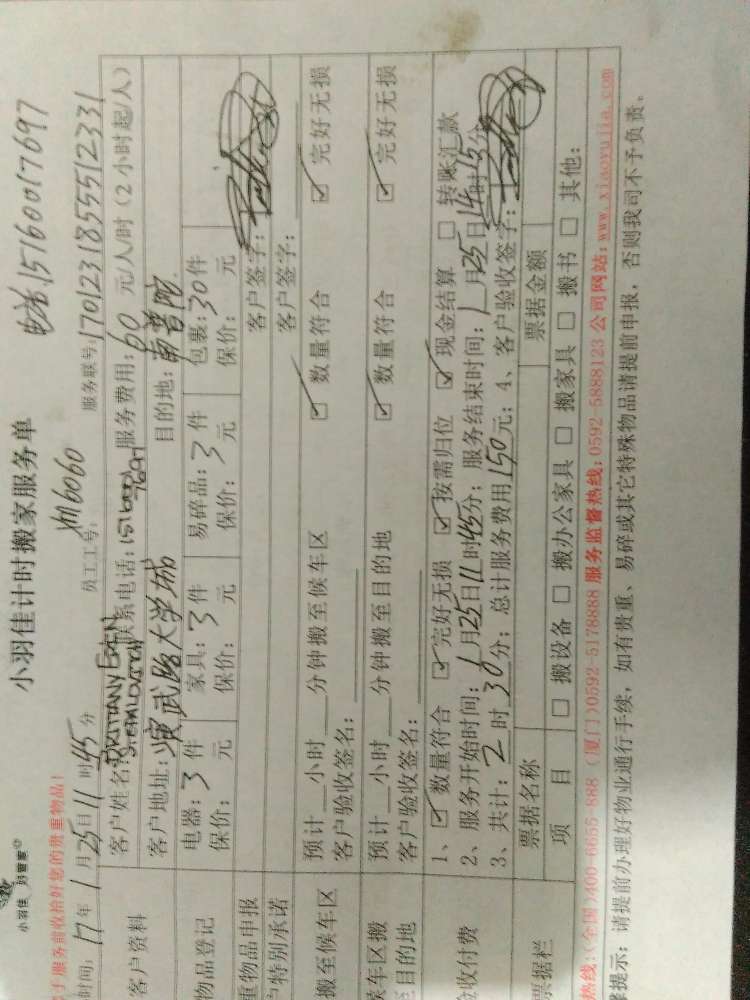 小羽佳 好管家
小羽佳计时搬家服务单
电话15160017697
于服务前收拾好您的贵重物品!
时间: 17年 1月25日11时45分
员工工号: xm6060
服务联号: 1701231855512331
客户资料
客户姓名: BRITTANY EDEN
联系电话: 15160017697
服务费用: 60 元/人/时 (2小时起/人)
客户地址: 演武路大学城
目的地: 南普陀
物品登记
电器: 3 件 家具: 3 件 易碎品: 3 件 包裹: 30 件
保价: 元 保价: 元 保价: 元 保价: 元
重物品申报
客户签字:
户特别承诺
客户签字:
搬至候车区
预计__小时__分钟搬至候车区 ☑ 数量符合 ☑ 完好无损
客户验收签名:
候车区搬
至目的地
预计__小时__分钟搬至目的地 ☑ 数量符合 ☑ 完好无损
客户验收签名:
验收付费
1、☑ 数量符合 ☑ 完好无损 ☑ 按需归位 ☑ 现金结算 □ 转账汇款
2、服务开始时间: 1月25日11时45分; 服务结束时间: 1月25日14时15分
3、共计: 2 时 30 分; 总计服务费用 150 元; 4、客户验收签字:
票据栏
票据名称 票据金额
项 目 □ 搬设备 □ 搬办公家具 □ 搬家具 □ 搬书 □ 其他:
热线:(全国)400-6655-888 (厦门)0592-5178888 服务监督热线:0592-5888123 公司网站:www.xiaoyujia.com
提示: 请提前办理好物业通行手续, 如有贵重、易碎或其它特殊物品请提前申报, 否则我司不予负责。